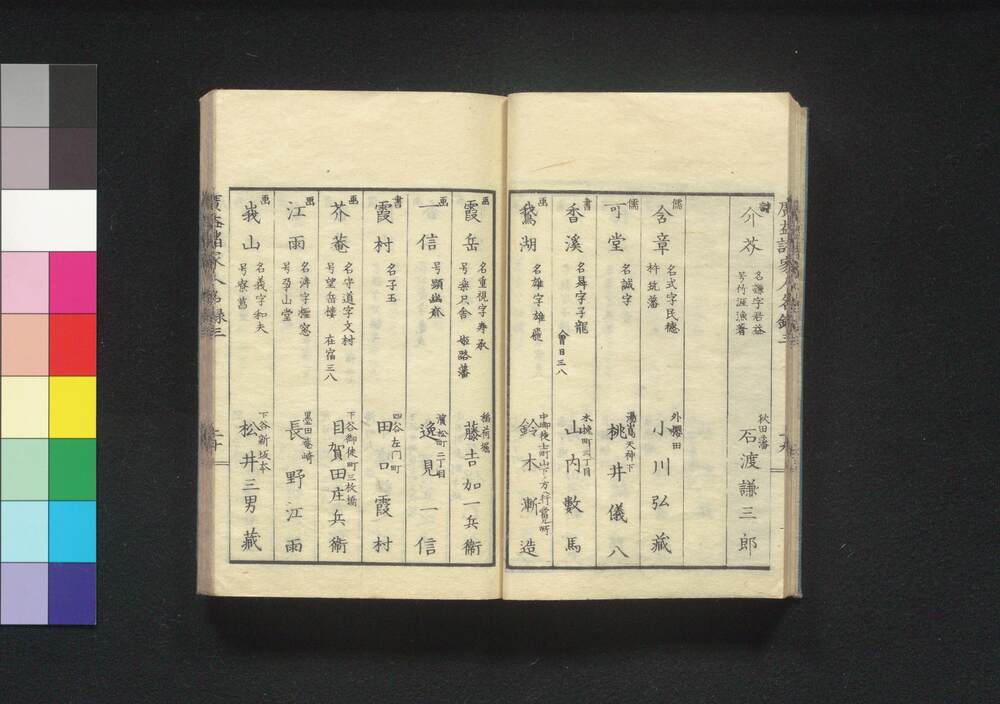 詩 介芥 名謙字君益 号竹涯漁者 秋田藩 石渡謙三郎
儒 含章 名式字民徳 杵筑藩 外櫻田 小川弘藏
儒 可堂 名誠字 湯嶌天神下 桃井儀八
書 香溪 名舜字子龍 會日三八 木挽町六丁目 山内數馬
画 鵞湖 名雄字雄飛 中御徒士町山下方ヘ行當見町 鈴木漸造
画 霞岳 名重視字寿承 号楽只舎 姫路藩 稲荷堀 藤吉加一兵衛
画 一信 号顕幽斎 濱松町二丁目 逸見一信
書 霞村 名子玉 四谷左門町 田口霞村
画 芥菴 名守道字文村 号望岳楼 在宿三八 下谷御徒町三枚橋 目賀田庄兵衛
画 江雨 号孕山堂 墨田菴崎 長野江雨
画 峩山 名義字和夫 号寮菖 下谷新坂本 松井三男藏
廣益諸家人名録三